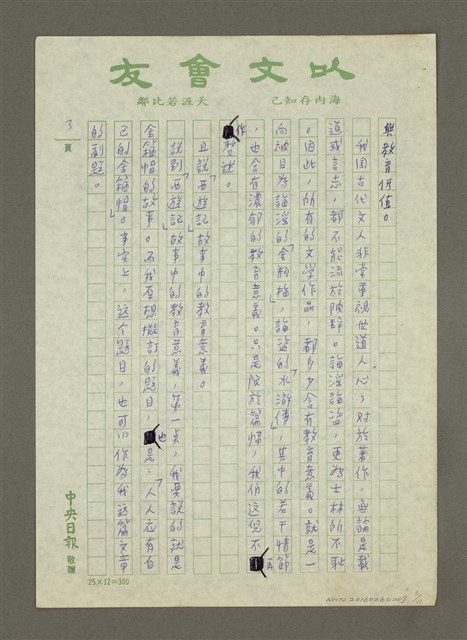 以文會友
海內存知己　天涯若比鄰
與教育價值。
我國古代文人非常重視世道人心；對於著作，無論是載
道或言志，都不能流於陂辭。誨淫誨盜，更為士林所不恥
。因此，所有的文學作品，都多少含有教育意義。就是一
向被目為誨淫的「金瓶梅」，誨盜的「水滸傳」，其中的若干情節
，也含有濃郁的教育意義。只是限於篇幅，我們這兒不再
作贅述。
且說「西遊記」故事中的教育意義。
說到「西遊記」故事中的教育意義，第一點，我要說的就是
金箍帽的故事。而我在想擬訂的題目，也是：「人人應有自
己的金箍帽」。事實上，這个題目，也可以作為我這篇文章
的副題。
3
頁
中央日報 敬贈
25×12=300